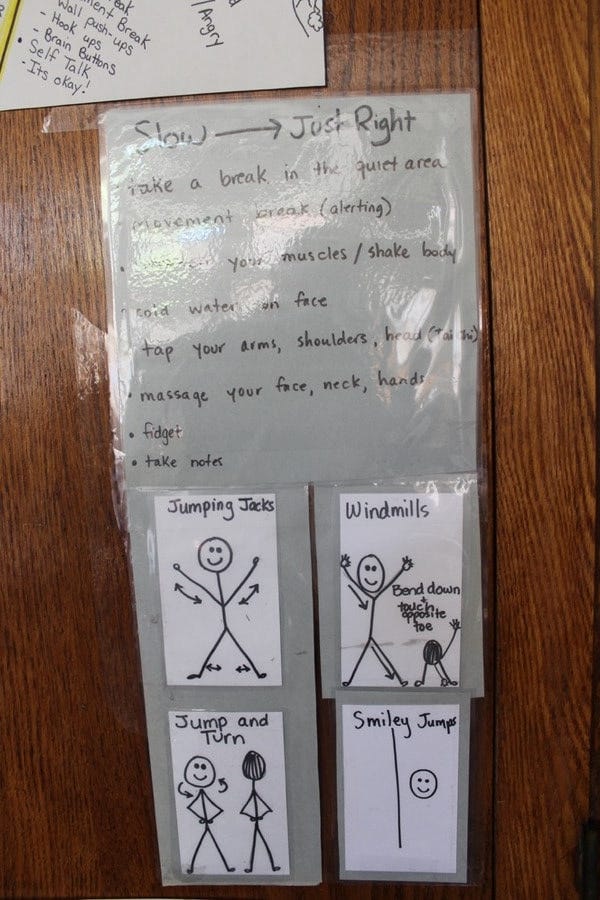 Break
- Wall push-ups
- Hook ups
- Brain Buttons
• Self Talk
- Its okay!
Angry
Slow → Just Right
• take a break in the quiet area
movement break (alerting)
• your muscles / shake body
cold water on face
tap your arms, shoulders, head (Tai Chi)
• massage your face, neck, hands
• fidget
• take notes
Jumping Jacks
Windmills
Bend down
+
touch
opposite
toe
Jump and
Turn
Smiley Jumps